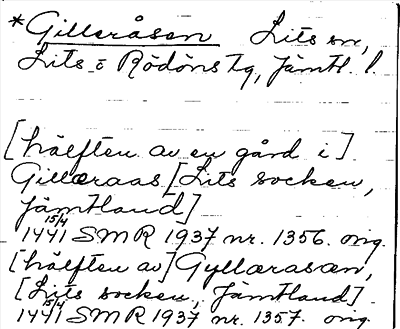 *Gilleråsen Lits sn,
Lits o Rödöns tg, Jämtl. l.
[hälften av en gård i]
Gillæraas [Lits socken,
Jämtland]
15/4
1441 SMR 1937 nr. 1356. orig.
[hälften av] Gyllærasæn,
[Lits socken, Jämtland]
15/4
1441 SMR 1937 nr. 1357. orig.